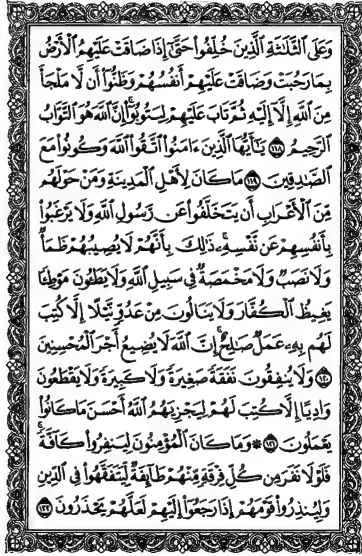 وَعَلَى ٱلثَّلَٰثَةِ ٱلَّذِينَ خُلِّفُوا۟ حَتَّىٰٓ إِذَا ضَاقَتْ عَلَيْهِمُ ٱلْأَرْضُ
بِمَا رَحُبَتْ وَضَاقَتْ عَلَيْهِمْ أَنفُسُهُمْ وَظَنُّوٓا۟ أَن لَّا مَلْجَأَ
مِنَ ٱللَّهِ إِلَّآ إِلَيْهِ ثُمَّ تَابَ عَلَيْهِمْ لِيَتُوبُوٓا۟ۚ إِنَّ ٱللَّهَ هُوَ ٱلتَّوَّابُ
ٱلرَّحِيمُ ١١٨ يَٰٓأَيُّهَا ٱلَّذِينَ ءَامَنُوا۟ ٱتَّقُوا۟ ٱللَّهَ وَكُونُوا۟ مَعَ
ٱلصَّٰدِقِينَ ١١٩ مَا كَانَ لِأَهْلِ ٱلْمَدِينَةِ وَمَنْ حَوْلَهُم
مِّنَ ٱلْأَعْرَابِ أَن يَتَخَلَّفُوا۟ عَن رَّسُولِ ٱللَّهِ وَلَا يَرْغَبُوا۟
بِأَنفُسِهِمْ عَن نَّفْسِهِۦۚ ذَٰلِكَ بِأَنَّهُمْ لَا يُصِيبُهُمْ ظَمَأٌ
وَلَا نَصَبٌ وَلَا مَخْمَصَةٌ فِى سَبِيلِ ٱللَّهِ وَلَا يَطَـُٔونَ مَوْطِئًا
يَغِيظُ ٱلْكُفَّارَ وَلَا يَنَالُونَ مِنْ عَدُوٍّ نَّيْلًا إِلَّا كُتِبَ
لَهُم بِهِۦ عَمَلٌ صَٰلِحٌۚ إِنَّ ٱللَّهَ لَا يُضِيعُ أَجْرَ ٱلْمُحْسِنِينَ
١٢٠ وَلَا يُنفِقُونَ نَفَقَةً صَغِيرَةً وَلَا كَبِيرَةً وَلَا يَقْطَعُونَ
وَادِيًا إِلَّا كُتِبَ لَهُمْ لِيَجْزِيَهُمُ ٱللَّهُ أَحْسَنَ مَا كَانُوا۟
يَعْمَلُونَ ١٢١ ۞ وَمَا كَانَ ٱلْمُؤْمِنُونَ لِيَنفِرُوا۟ كَآفَّةًۚ
فَلَوْلَا نَفَرَ مِن كُلِّ فِرْقَةٍ مِّنْهُمْ طَآئِفَةٌ لِّيَتَفَقَّهُوا۟ فِى ٱلدِّينِ
وَلِيُنذِرُوا۟ قَوْمَهُمْ إِذَا رَجَعُوٓا۟ إِلَيْهِمْ لَعَلَّهُمْ يَحْذَرُونَ ١٢٢